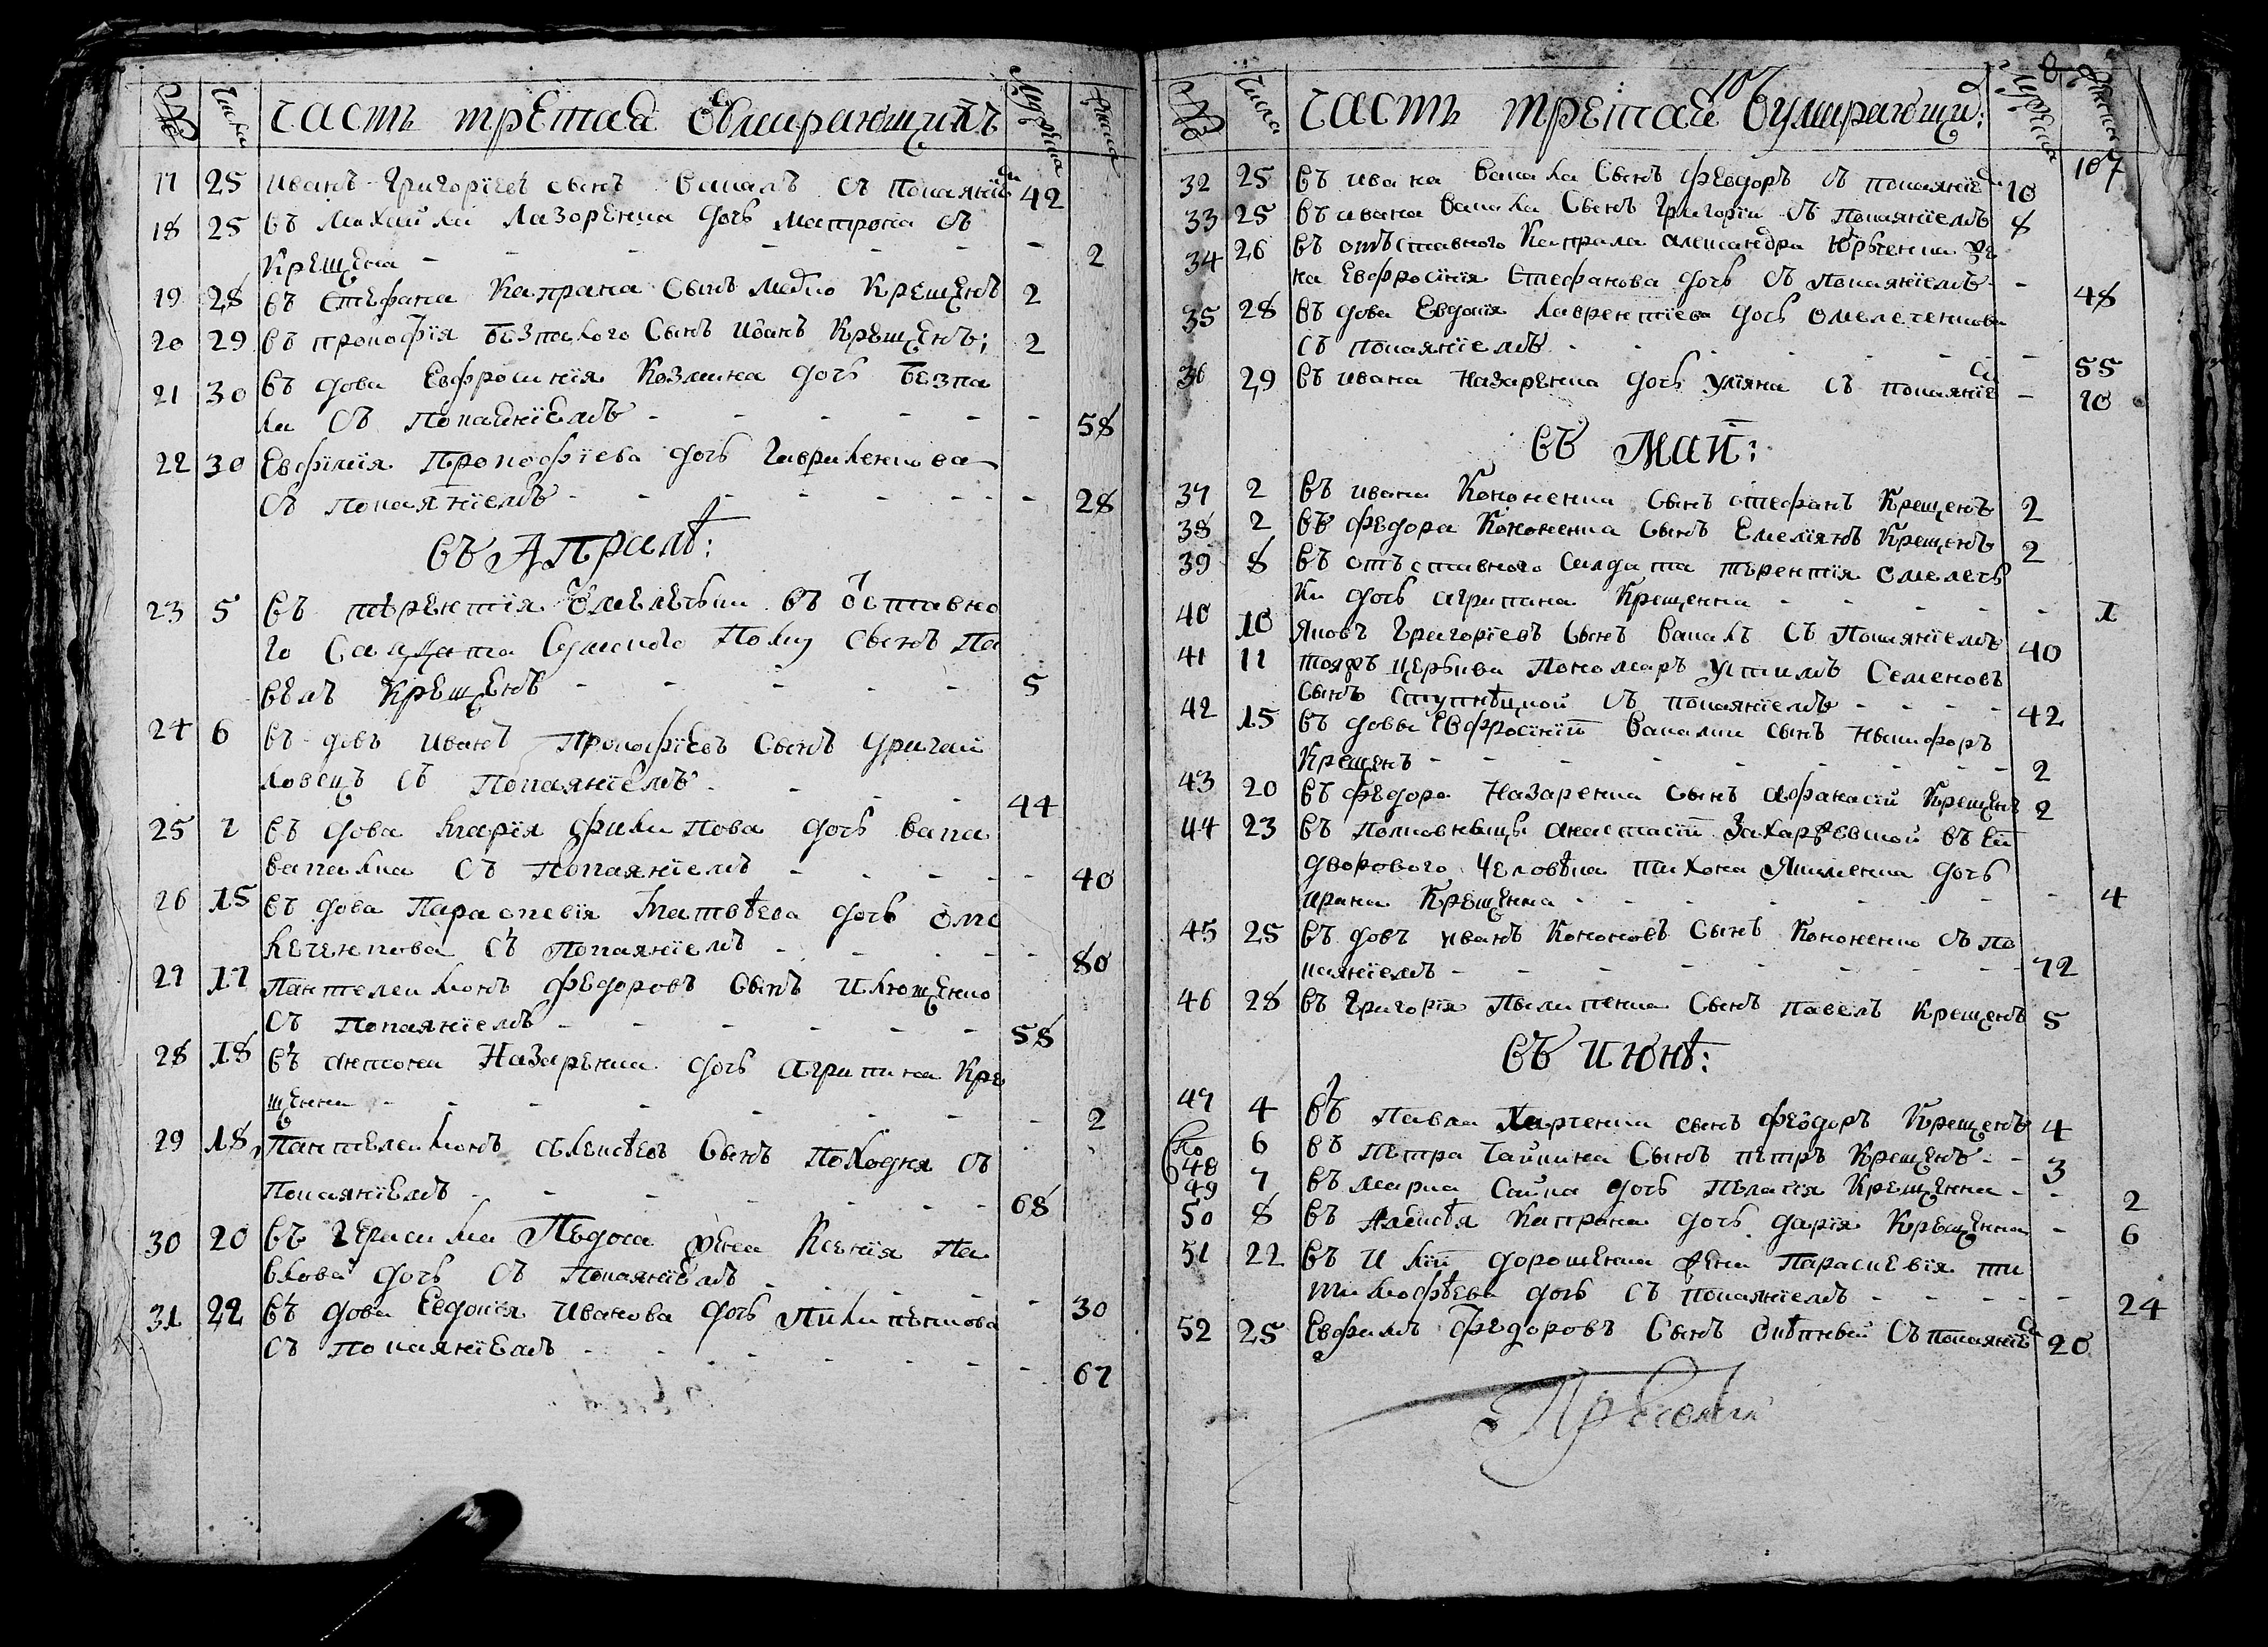 № Числа Часть третая О умирающихъ Мужеска Женска
17 25 Иванъ Григорїевъ сынъ Вакалъ съ покаянїем 42
18 25 въ Михайла Лазоренка дочь Матрона
крещена - - - - - - 2
19 28 въ Стефана Капрана сынъ крещенъ 2
20 29 въ Прокофїя сынъ Иванъ крещенъ; 2
21 30 въ дова Евфросинїя Козмина дочь
съ покаянїемъ - - - - - 58
22 30 Евфимїя Прокофїева дочь Гавриленкова
съ покаянїемъ - - - - - - 28
въ Априлѣ:
23 5 въ Терентїя въ отставно
го салдата Сумского полку сынъ Па
велъ крещенъ - - - - - 5
24 6 въ довъ Иванъ Прокофїевъ сынъ
съ покаянїемъ - - - 44
25 7 въ дова Марїя Филипова дочь
съ покаянїемъ - - - - - 40
26 15 въ дова Параскевїя Матвѣева дочь Оме
леченкова съ покаянїемъ - - - - 80
27 17 Пантелеимонъ Федоровъ сынъ Илющенко
съ покаянїемъ - - - - - - 58
28 18 въ Антона Назаренка дочь Агрипина кре
щенна - - - - - - - 2
29 18 Пантелеимонъ Алексѣевъ сынъ Походня съ
покаянїемъ - - - - - - 68
30 20 въ Герасима жена Ксенїя Па
влова дочь съ покаянїемъ - - - - 30
31 22 въ дова Евдокїя Иванова дочь Пилипенкова
съ покаянїемъ - - - - - - - 67
107
№ Числа Часть третая О умирающи: Мужеска Женска
107
32 25 въ Ивана Вакала сынъ Феодоръ съ покаянїем 10
33 25 въ Ивана Вакала сынъ Григорїи съ покаянїемъ 8
34 26 въ отъставного капрала Александра Юрченка же
на Евфросїнїя Стефанова дочь съ покаянїемъ - - 48
35 28 въ дова Евдокїя Лаврентїева дочь Омелеченкова
съ покаянїемъ - - - - - - - 55
36 29 въ Ивана Назаренка дочь Улїяна съ покаянїем - 10
въ Маїи:
37 2 въ Ивана Кононенка сынъ Стефанъ крещенъ 2
38 2 въ Федора Кононенка сынъ Емелїянъ крещенъ 2
39 8 въ отъставного салдата Терентїя Омелеч
ки дочь Агрипина крещенна - - - - - 1
40 10 Яковъ Григорїевъ сынъ Вакалъ съ покаянїемъ 40
41 11 тояжъ церкви пономаръ Устимъ Семеновъ
сынъ Ступнѣцкой съ покаянїемъ - - - - 42
42 15 въ довы Евфросїнїи Вакалки сынъ Никифоръ
крещенъ - - - - - - - - 2
43 20 въ Федора Назаренка сынъ Афанасїи крещенъ 2
44 23 въ полковницы Анастасїи Захаржевской въ еи
дворового человѣка Тихона Якименка дочь
Ирина крещенна - - - - - - - 4
45 25 въ довъ Иванъ Кононовъ сынъ Кононенко съ по
каянїемъ - - - - - - - - 72
46 28 въ Григорїя Пилипенка сынъ Павелъ крещенъ 5
въ Июнѣ:
47 4 въ Павла Харченка сынъ Феодоръ крещенъ 4
48 6 въ Петра сынъ Петръ крещенъ - - 3
49 7 въ Марка дочь Пелагїя крещенна - - 2
50 8 въ Алексѣя Капрана дочь Дарїя крещенна - 6
51 22 въ Илїи Дорошенка жена Параскевїя Ти
тимофѣева дочь съ покаянїемъ - - - - - 24
52 25 Евфимъ Федоровъ сынъ съ покаянїем 20